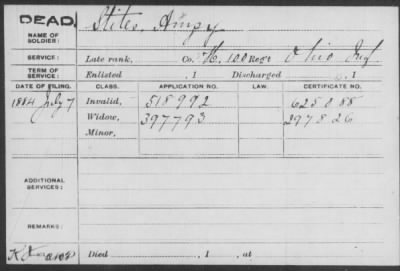 DEAD.
NAME OF SOLDIER: Stites,
SERVICE: Late rank, Co. H, 100 Reg't Ohio Inf
TERM OF SERVICE: Enlisted , 1 Discharged , 1
DATE OF FILING. CLASS. APPLICATION NO. LAW. CERTIFICATE NO.
1884 July 7 Invalid, 518992 625088
Widow, 397793 297826
Minor,
ADDITIONAL SERVICES:
REMARKS:
Died , 1 , at